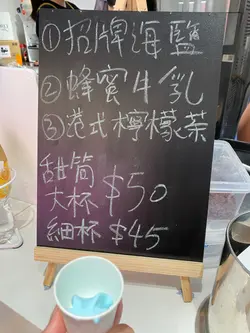 ①招牌海鹽
②蜂蜜牛乳
③港式檸檬茶
甜筒
大杯 $50
細杯 $45